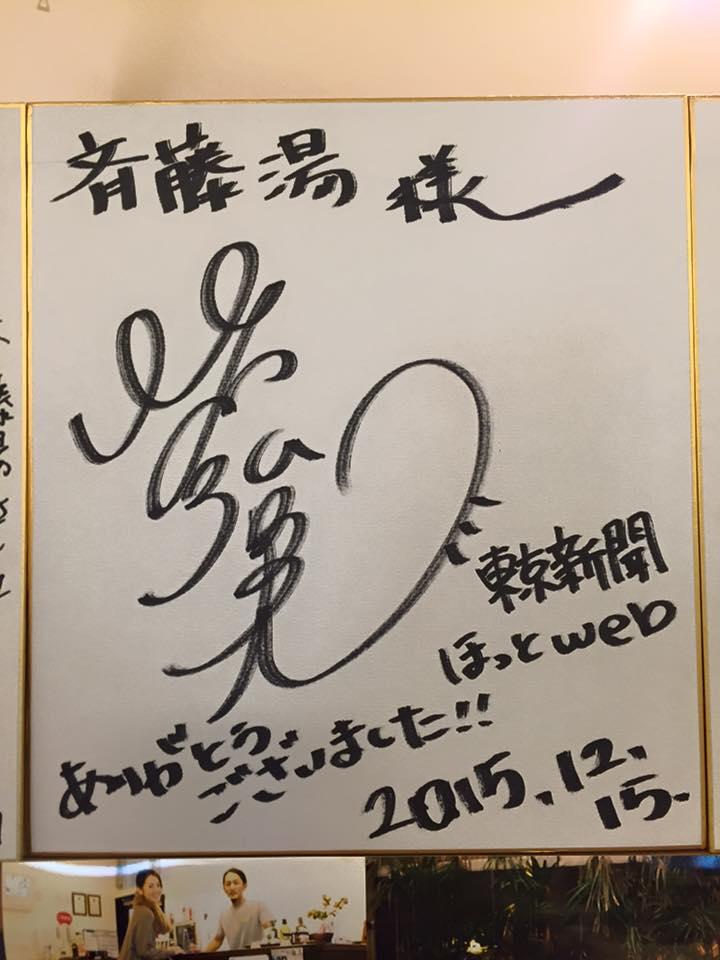 斉藤湯様
東京新聞
ほっとweb
ありがとう
ございました!!
2015.12.
15.